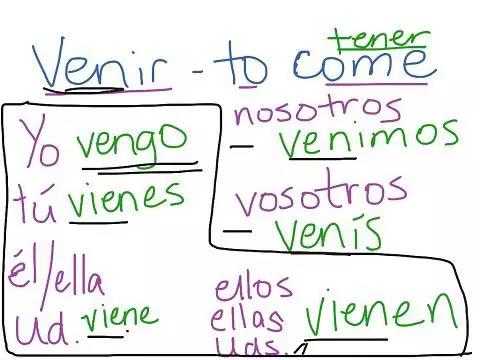 tener
Venir - to come
Yo vengo
tú vienes
él/ella
Ud. viene
nosotros
- venimos
vosotros
- venís
ellos
ellas vienen
Uds.